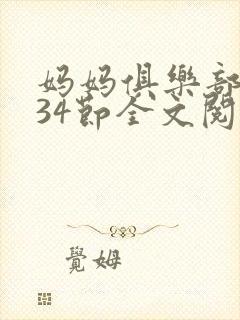 妈妈俱樂部
34節全文閱
覺姆